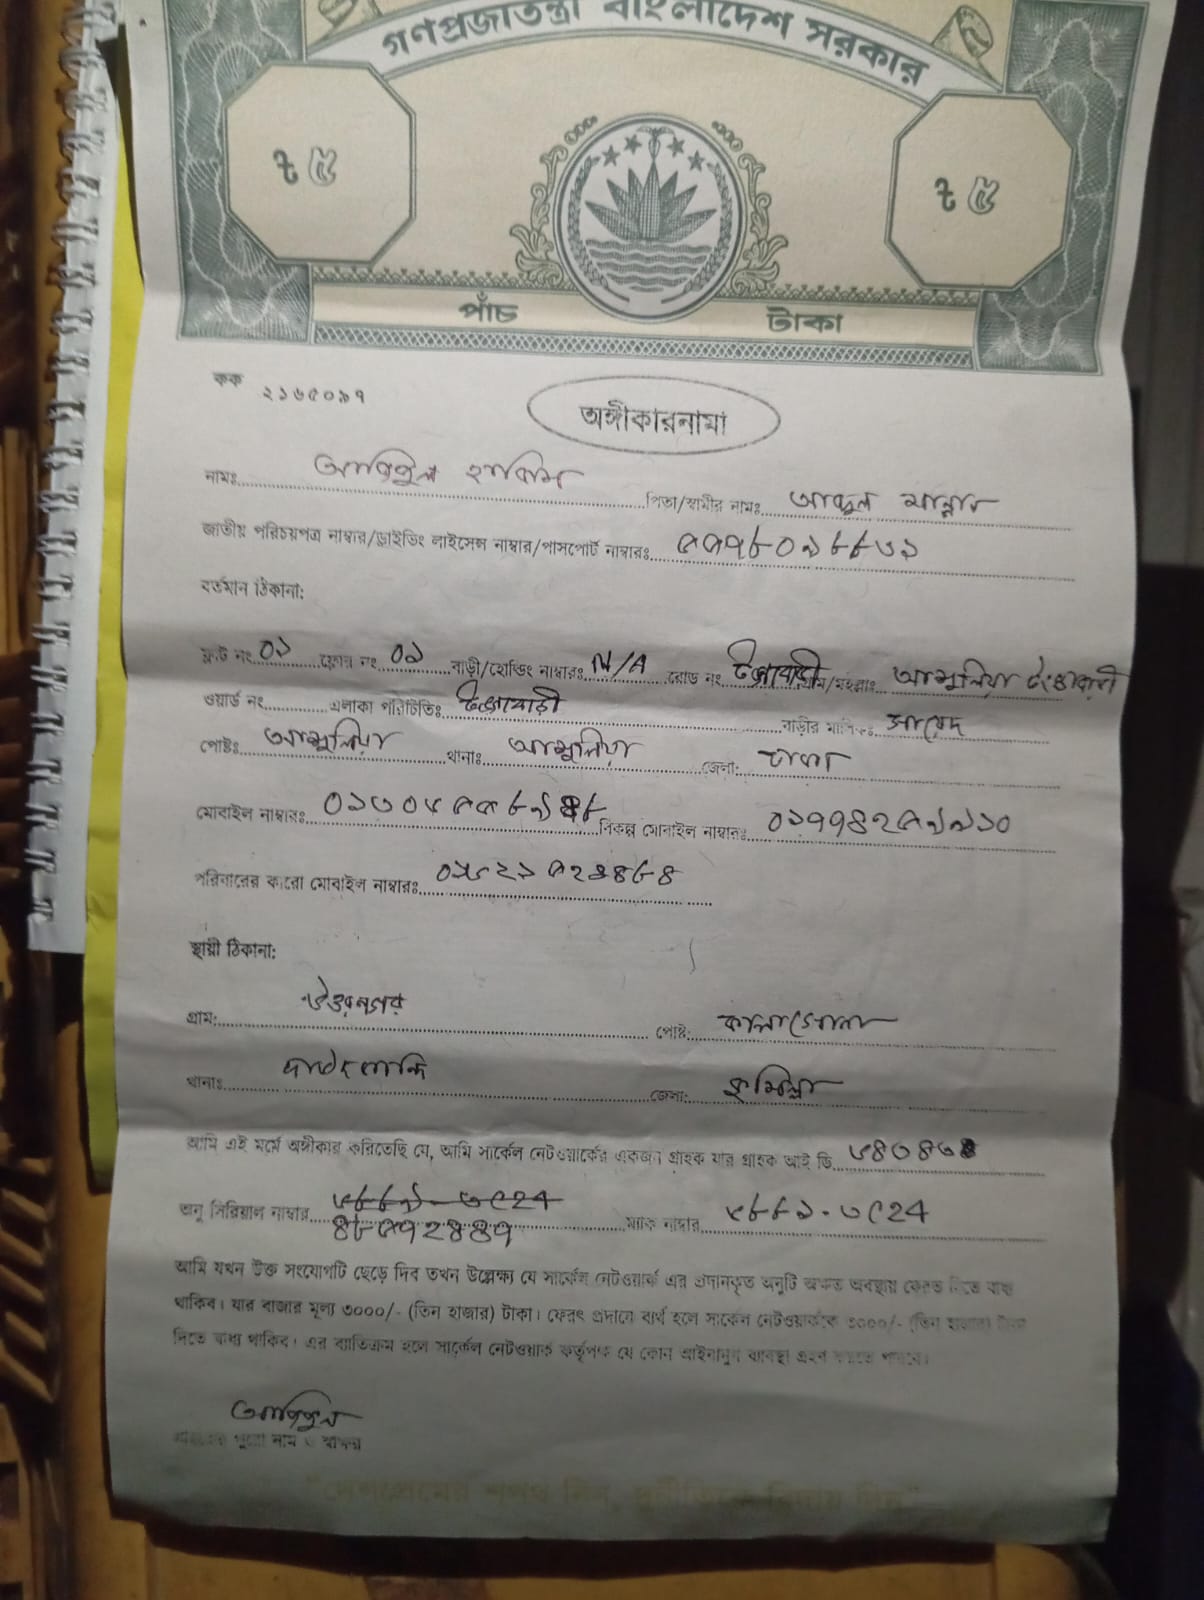 গণপ্রজাতন্ত্রী বাংলাদেশ সরকার
৳ ৫ ৳ ৫
পাঁচ টাকা
কক ২১৬৫০৯৭
অঙ্গীকারনামা
নামঃ আরিফুল হাকিম পিতা/স্বামীর নামঃ আব্দুল মান্নান
জাতীয় পরিচয়পত্র নাম্বার/ড্রাইভিং লাইসেন্স নাম্বার/পাসপোর্ট নাম্বারঃ
বর্তমান ঠিকানা:
ফ্লাট নং ০১ ফ্লোর নং ০১ বাড়ী/হোল্ডিং নাম্বারঃ N/A রোড নং গ্রাম/মহল্লাঃ আশুলিয়া
ওয়ার্ড নং এলাকা পরিচিতিঃ বাড়ীর মালিকঃ জাবেদ
পোষ্টঃ আশুলিয়া থানাঃ আশুলিয়া জেলা: ঢাকা
মোবাইল নাম্বারঃ বিকল্প মোবাইল নাম্বারঃ
পরিবারের কারো মোবাইল নাম্বারঃ
স্থায়ী ঠিকানা:
গ্রাম: উত্তরনগর পোষ্ট:
থানাঃ দাউদকান্দি জেলা: কুমিল্লা
আমি এই মর্মে অঙ্গীকার করিতেছি যে, আমি সার্কেল নেটওয়ার্কের একজন গ্রাহক যার গ্রাহক আই ডি
অনু সিরিয়াল নাম্বার ৪৮৫৭২৪৪৭ ম্যাক নাম্বার
আমি যখন উক্ত সংযোগটি ছেড়ে দিব তখন উল্লেক্ষ্য যে সার্কেল নেটওয়ার্ক এর প্রদানকৃত অনুটি অক্ষত অবস্থায় ফেরত দিতে বাধ্য
থাকিব। যার বাজার মূল্য ৩০০০/- (তিন হাজার) টাকা। ফেরৎ প্রদানে ব্যর্থ হলে সার্কেল নেটওয়ার্ককে ৩০০০/- (তিন হাজার) টাকা
দিতে বাধ্য থাকিব। এর ব্যাতিক্রম হলে সার্কেল নেটওয়ার্ক কর্তৃপক্ষ যে কোন আইনানুগ ব্যাবস্থা গ্রহণ করতে পারবে।
আরিফুল
গ্রাহকের পুরো নাম ও স্বাক্ষর
"দেশপ্রেমের শপথ নিন, দুর্নীতিকে বিদায় দিন"